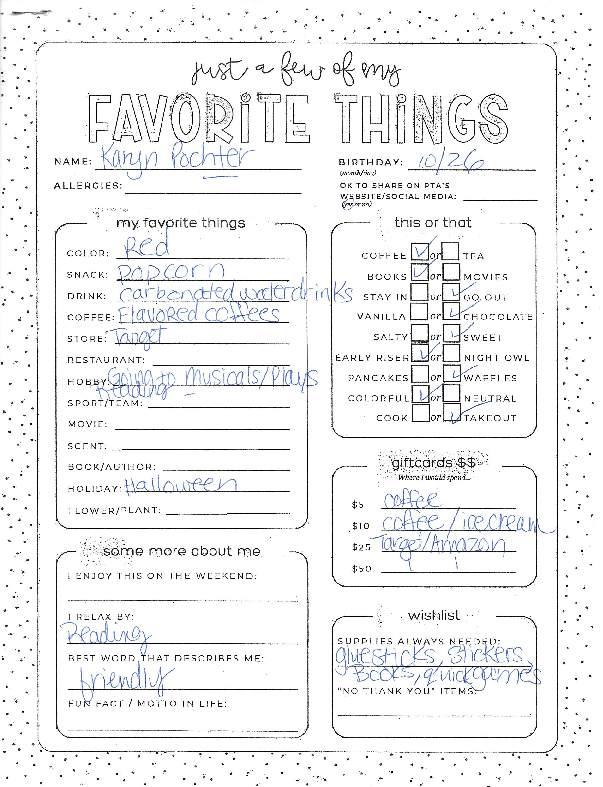 just a few of my
FAVORITE THINGS
NAME: Karyn Pochter
BIRTHDAY: 10/26
(month/day)
ALLERGIES:
OK TO SHARE ON PTA'S
WEBSITE/SOCIAL MEDIA:
(yes or no)
my favorite things
COLOR: Red
SNACK: popcorn
DRINK: carbonated water drinks
COFFEE: Flavored coffees
STORE: Target
RESTAURANT:
HOBBY: Going to Musicals/Plays
Reading
SPORT/TEAM:
MOVIE:
SCENT:
BOOK/AUTHOR:
HOLIDAY: Halloween
FLOWER/PLANT:
this or that
COFFEE ✓ or TEA
BOOKS ✓ or MOVIES
STAY IN or ✓ GO OUT
VANILLA or ✓ CHOCOLATE
SALTY or ✓ SWEET
EARLY RISER ✓ or NIGHT OWL
PANCAKES or ✓ WAFFLES
COLORFUL ✓ or NEUTRAL
COOK or ✓ TAKEOUT
giftcards $$
Where I would spend...
$5 coffee
$10 coffee/icecream
$25 Target/Amazon
$50
some more about me
I ENJOY THIS ON THE WEEKEND:
I RELAX BY:
Reading
BEST WORD THAT DESCRIBES ME:
friendly
FUN FACT / MOTTO IN LIFE:
wishlist
SUPPLIES ALWAYS NEEDED:
gluesticks, stickers
Books, quick games
"NO THANK YOU" ITEMS: